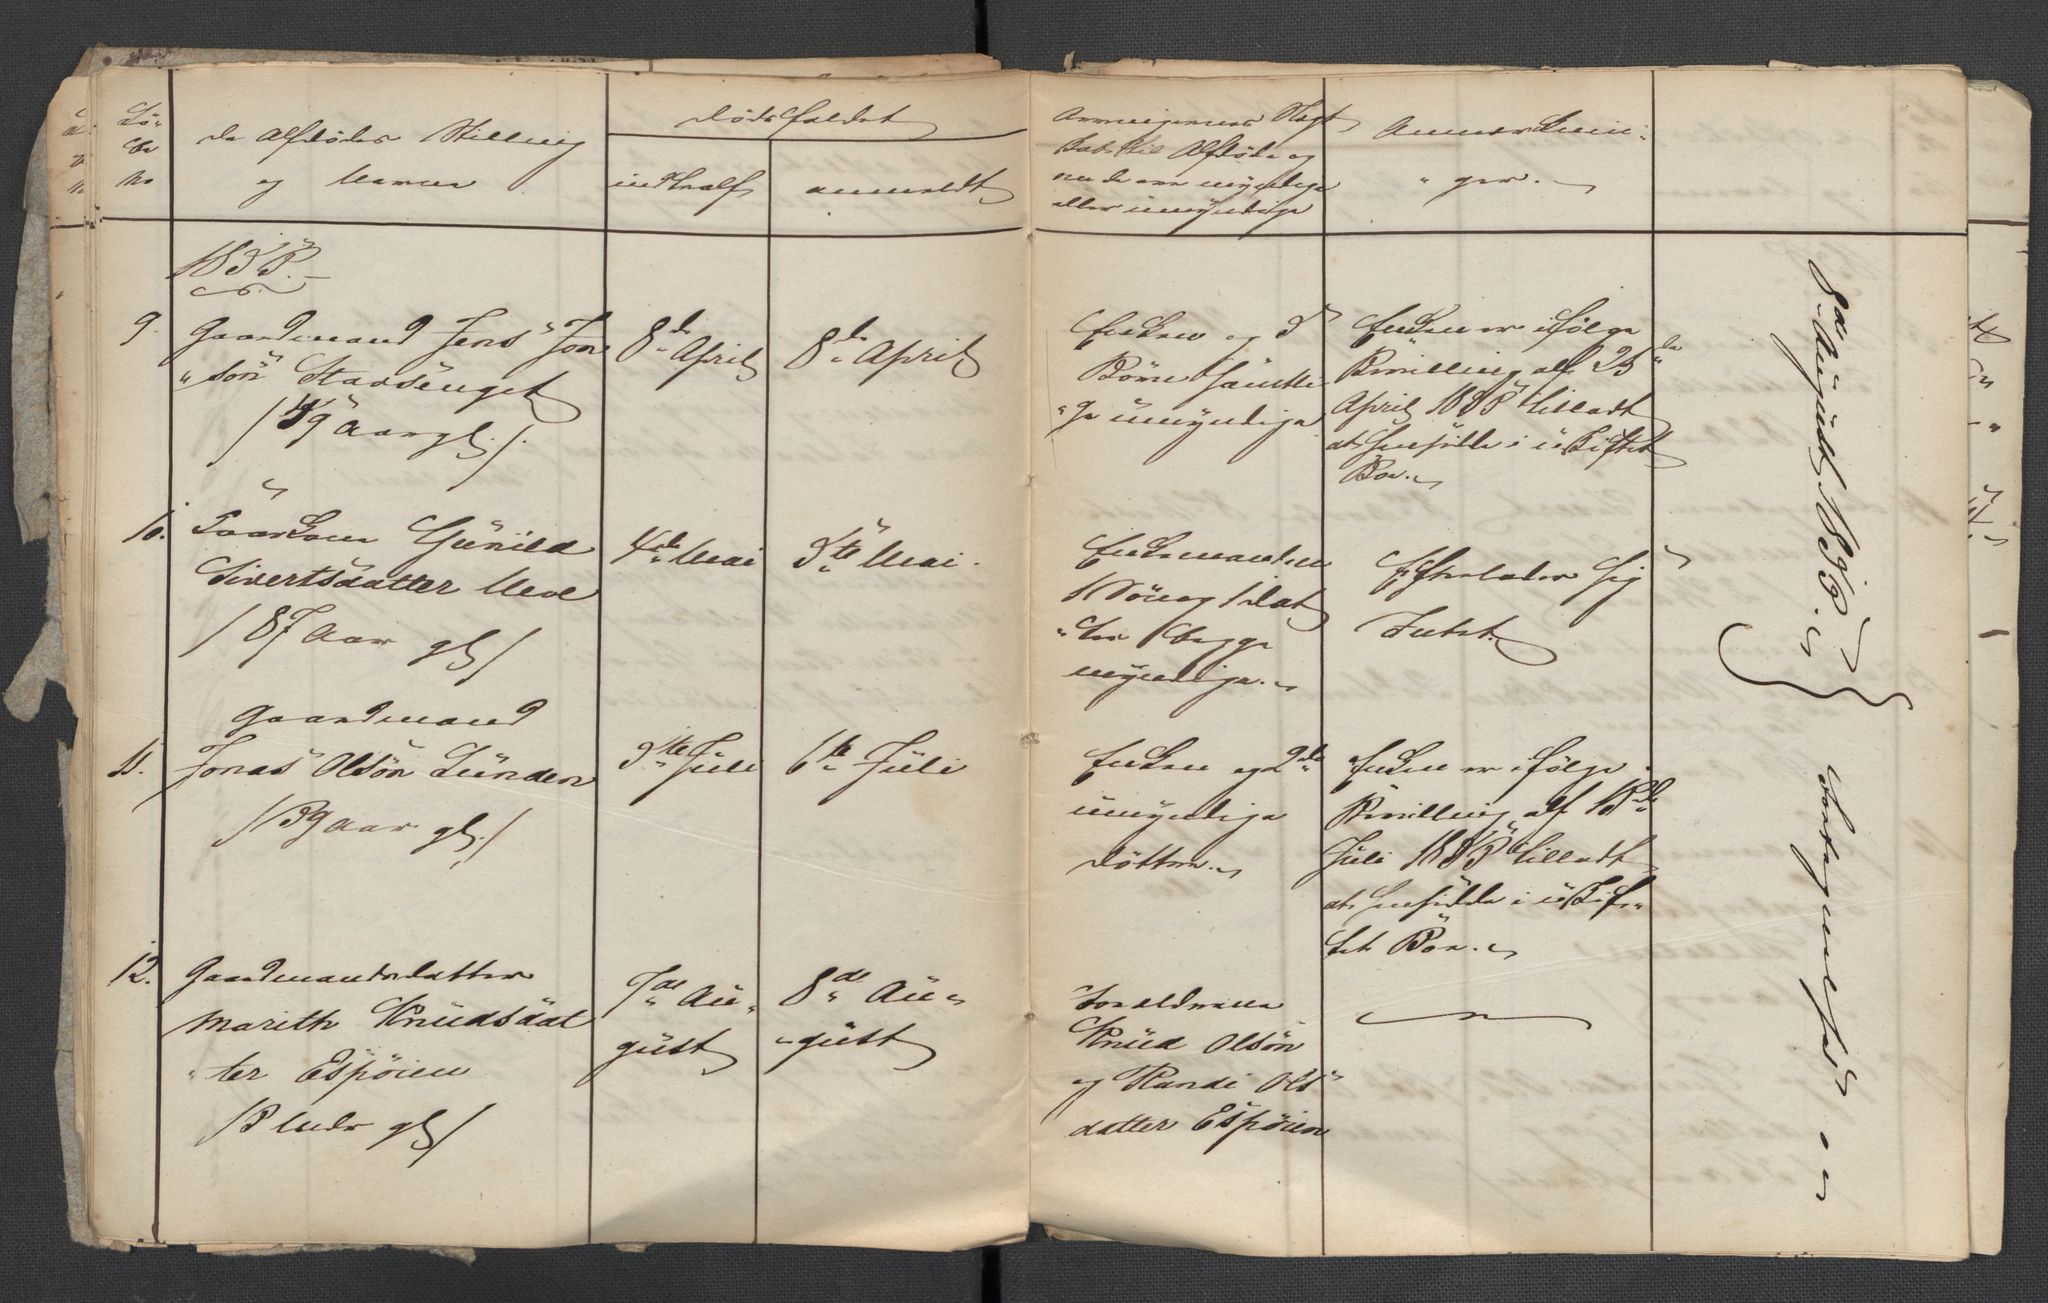 Lö-
be
No
de Afdödes Stilling
og Navne
Dödsfaldet
indtraf
anmeldt
Arvingernes Slægt
skab til Afdöde og
om de ere myndige
eller umyndige
Anmærknin-
" ger.
185
9.
Gaardmand Jens Jon
" sön Stavsenget
/ 49 Aar gl. /
8de April
8de April
Enken og 3
Börn samtli
" ge umyndige
Enken er ifölge
Bevilling af 25de
April tilladt
at hensidde i uskiftet
Boe.
10.
Gunild
Sivertsdatter Moe
/ 87 Aar gl /
4de Mai
5te Mai.
Enkemanden
1 Sön og 1 Dat
" ter begge
myndige.
Efterlader sig
Intet.
11.
Gaardmand
Jonas Olsön Lunden
/ 39 Aar gl. /
3die Juli
6te Juli
Enken og 2de
umyndige
Döttre.
Enken er ifölge
Bevilling af
Juli tilladt
at hensidde i uskif-
tet Boe.
12.
Gaardmandsdatter
Marith Knudsdat
" ter Espöien
/ 8 Uger gl /
7de Au-
gust
8de Au-
" gust
Forældrene
Knud Olsön
og Randi Ols
datter Espöien
8de August